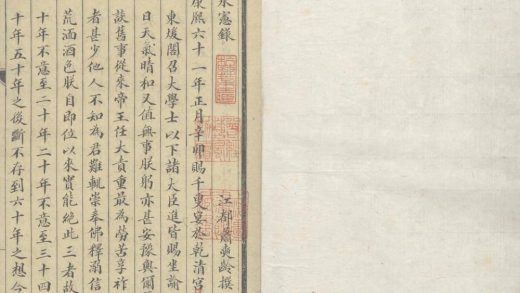 永憲錄
江都蕭奭齡撰
康熙六十一年正月辛卯賜千叟宴於乾清宮
東煖閣召大學士以下諸大臣進皆賜坐諭
日天氣晴和又值無事朕躬亦甚安豫與爾
談舊事從來帝王任大責重最為勞苦享祚
者甚少他人不知為君難軌崇奉佛釋溺信
荒酒酒色朕自即位以來實能絕此三者故
十年不意至二十年二十年不意至三十四
十年五十年之後斷不存到六十年之想今